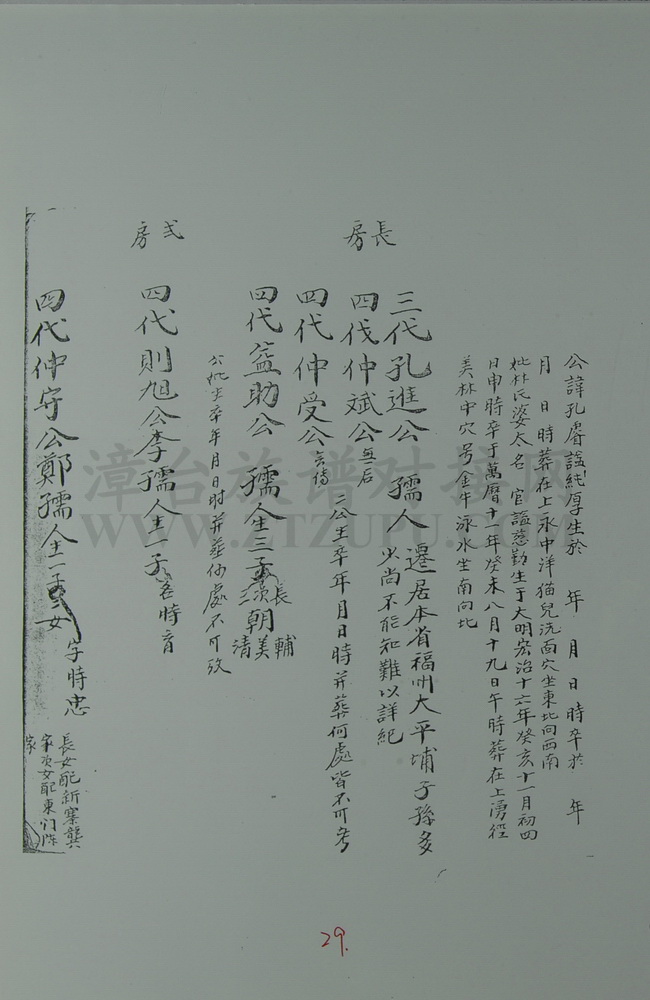 公諱孔睿謚純厚生於 年 月 日 時卒於 年
月 日 時葬在上永中洋猫兒洗面穴坐東北向西南
妣林氏婆太名 官謚慈勤生于大明宏治十六年癸亥十一月初四
日申時卒于萬曆十一年癸未八月十九日午時葬在上湧徑
美林中穴号金牛泳水坐南向北
長房
三代孔進公 孺人 遷居本省福州大平埔子孫多
少尚不能知難以詳紀
四代仲斌公 無后
四代仲受公 二公生卒年月日時并葬何處皆不可考
四代益助公 孺人生三子 長 朝輔 美 清
公妣生卒年月日時并葬何處不可攷
弍房
四代則旭公李孺人生一子名時育
四代仲守公鄭孺人生一子二女
字時忠
長女配新寨龔
家次女配東门陈
家
漳台族谱对接网
WWW.ZTZUPU.COM
29.